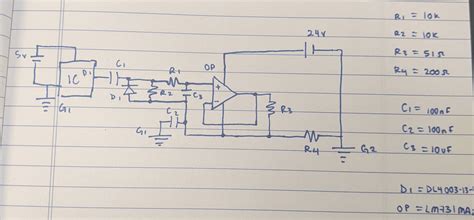 5v
IC
D1
G1
C1
D1
R2
R1
C3
OP
+
-
24v
R3
C2
G1
R4
G2
R1 = 10k
R2 = 10k
R3 = 51Ω
R4 = 200Ω
C1 = 100nF
C2 = 100nF
C3 = 10uF
D1 = DL4003-13-
OP = LM731MA